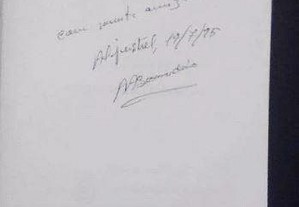 com muita amiz
Aljustrel, 19/7/95